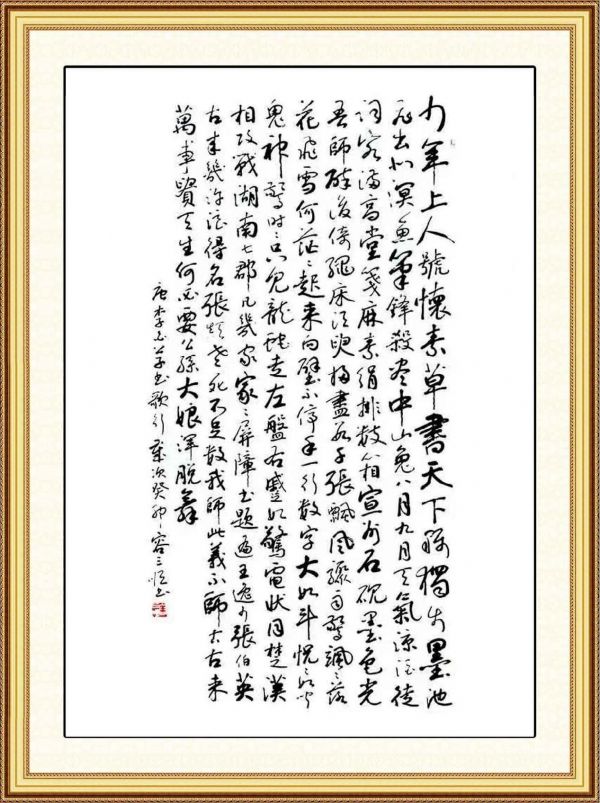 少年上人號懷素草書天下稱獨步墨池
飛出北溟魚筆鋒殺盡中山兔八月九月天氣涼酒徒
詞客滿高堂箋麻素絹排數箱宣州石硯墨色光
吾師醉後倚繩床須臾掃盡數千張飄風驟雨驚颯々落
花飛雪何茫々起來向壁不停手一行數字大如斗怳々如聞
鬼神驚時々只見龍蛇走左盤右蹙如驚電狀同楚漢
相攻戰湖南七郡凡幾家家々屏障書題遍王逸少張伯英
古來幾許浪得名張顛老死不足數我師此義不師古古來
萬事貴天生何必要公孫大娘渾脫舞
唐李白草書歌行歲次癸卯